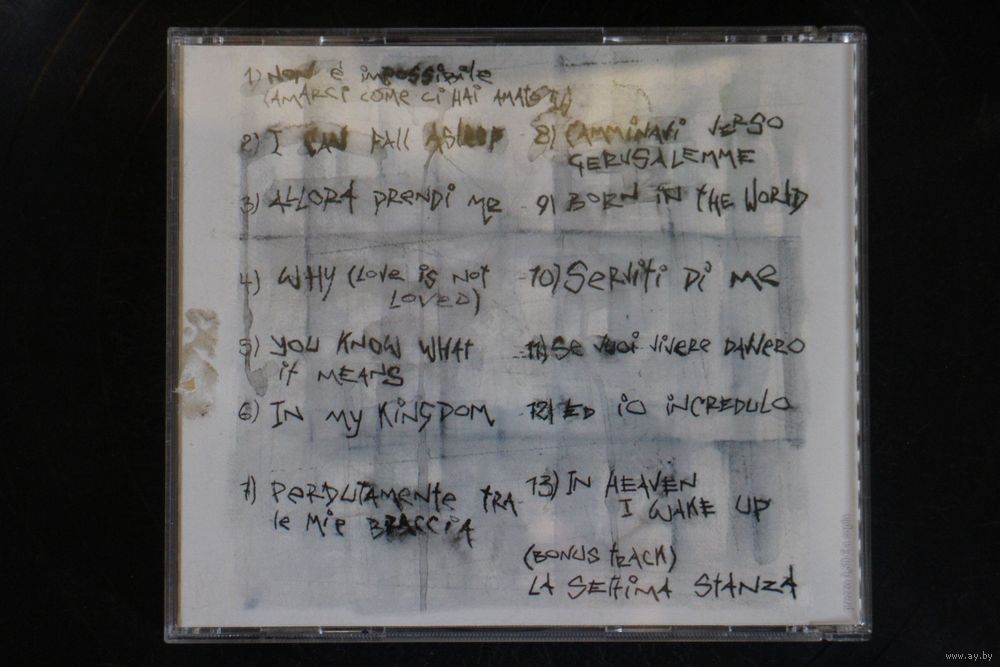 1) NON é impossibile
(AMARCI COME CI HAI AMATO TU)
2) I CAN FALL ASLEEP
3) ALLORA prendi me
4) WHY (Love is Not
LOVED)
5) YOU KNOW WHAT
it MEANS
6) IN my KINGDOM
7) PERDUTAMENTE TRA
le Mie BRACCIA
8) CAMMINAVI VERSO
GERUSALEMME
9) BORN IN THE WORLD
10) Serviti Di me
11) Se vuoi vivere DAVVERO
12) ED io INCREDULO
13) IN HEAVEN
I WAKE UP
(BONUS TRACK)
LA SETTIMA STANZA
www.ay.by